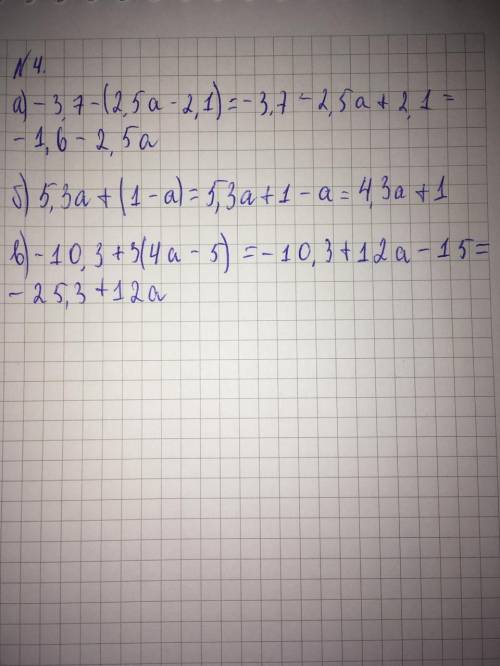 №4.
а) -3,7-(2,5а-2,1)=-3,7-2,5а+2,1=
-1,6-2,5а
б) 5,3а+(1-а)=5,3а+1-а=4,3а+1
в) -10,3+3(4а-5)=-10,3+12а-15=
-25,3+12а